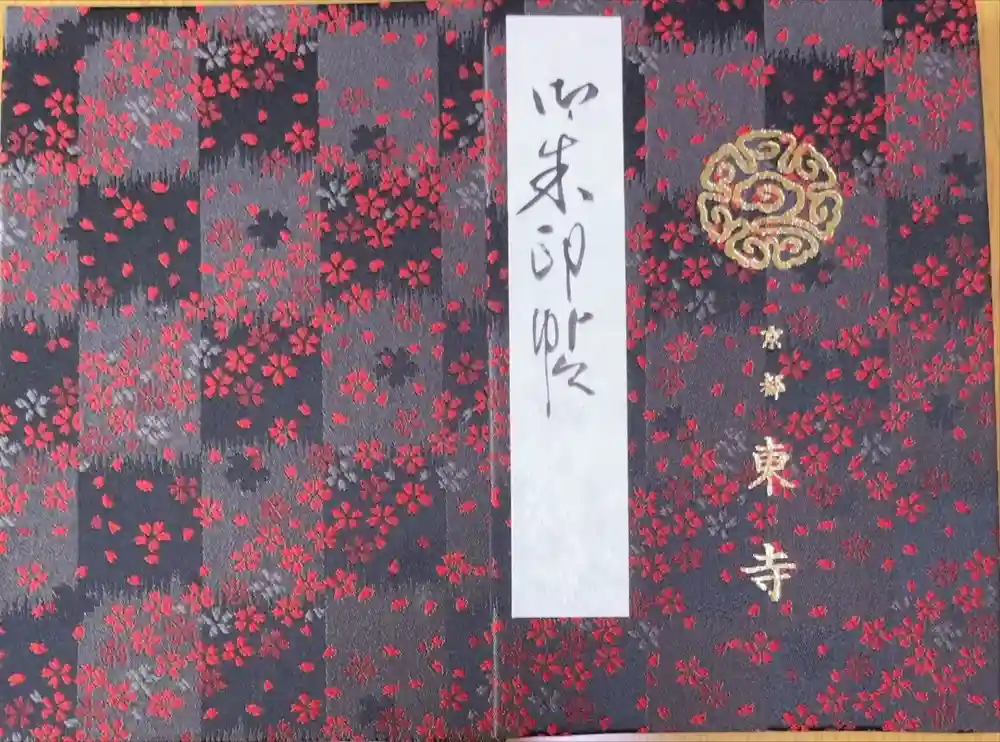 京都
東寺
御朱印帖